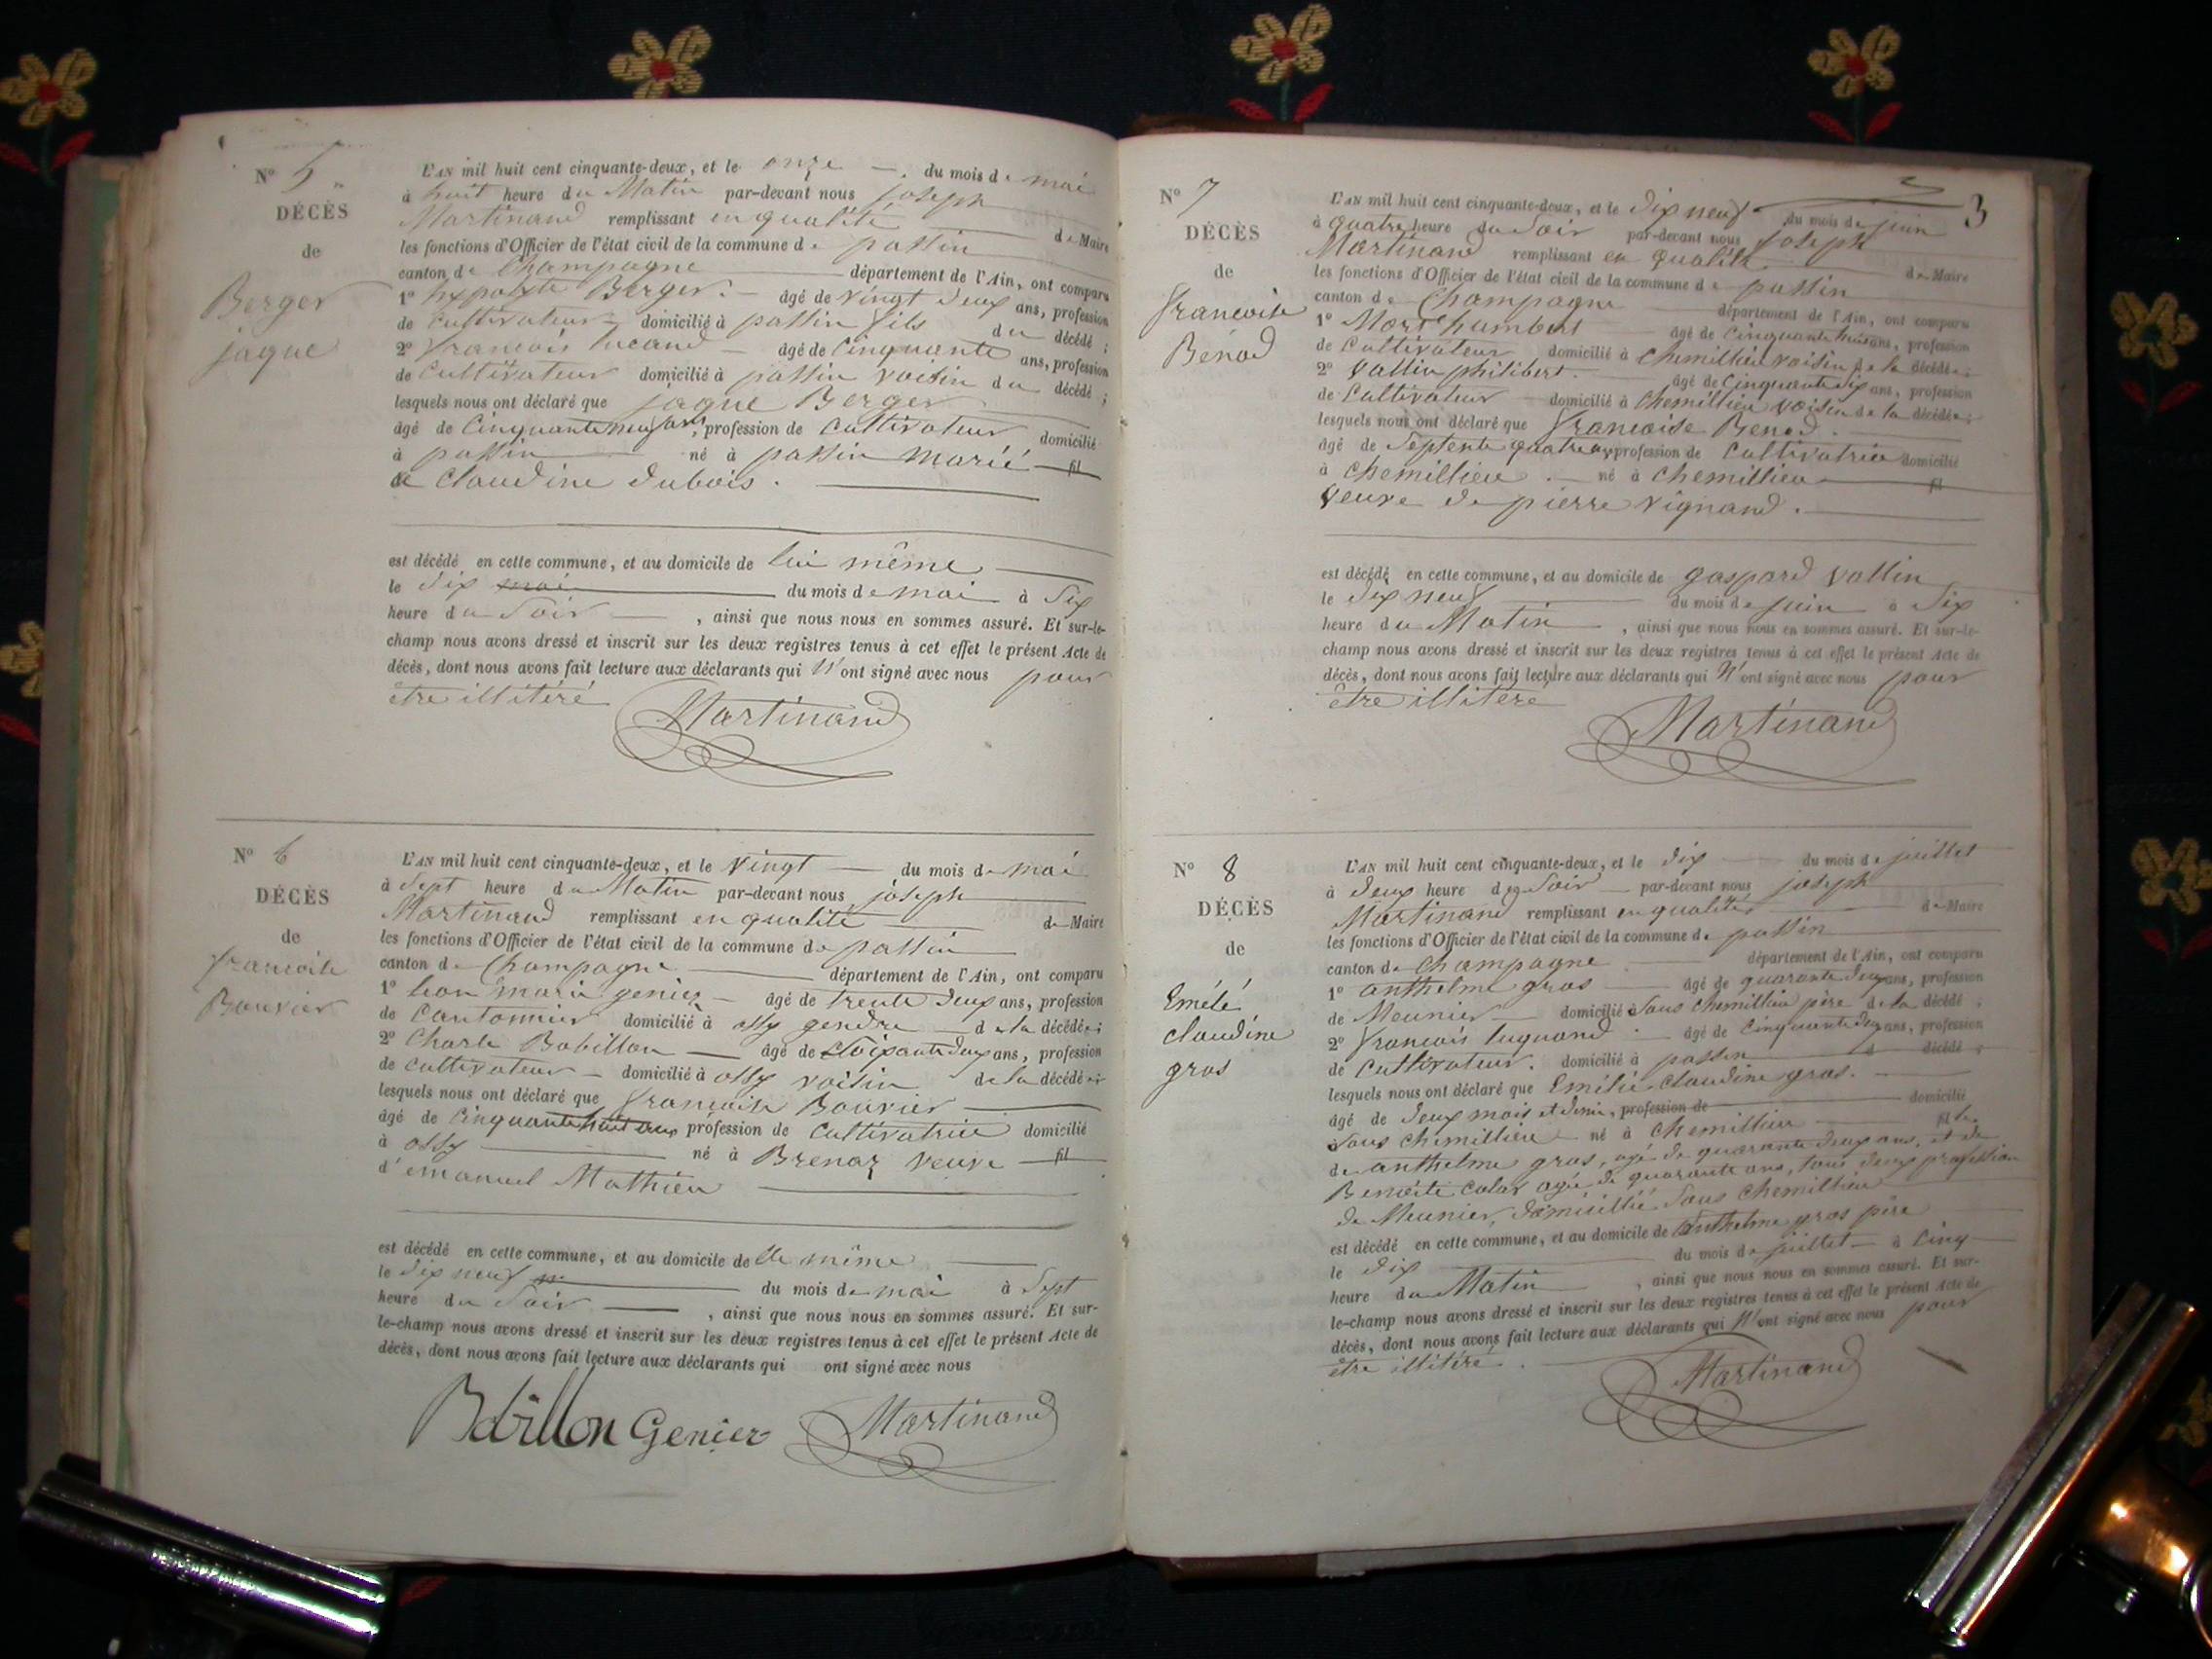 N° 5
DÉCÈS
de
Berger
jaque
L'AN mil huit cent cinquante-deux, et le onze du mois de mai
à huit heure du Matin par-devant nous joseph
Martinand remplissant en qualité de Maire
les fonctions d'Officier de l'état civil de la commune de passin
canton de Champagne département de l'Ain, ont comparu
1° hypolyte Berger âgé de vingt deux ans, profession
de cultivateur domicilié à passin fils du décédé ;
2° francois âgé de Cinquante ans, profession
de Cultivateur domicilié à passin voisin du décédé ;
lesquels nous ont déclaré que jaque Berger
âgé de Cinquante neuf ans, profession de Cultivateur domicilié
à passin né à passin marié fil
de Claudine dubois.
est décédé en cette commune, et au domicile de lui même
le dix mai du mois de mai à Six
heure du Soir , ainsi que nous nous en sommes assuré. Et sur-le-
champ nous avons dressé et inscrit sur les deux registres tenus à cet effet le présent Acte de
décès, dont nous avons fait lecture aux déclarants qui N'ont signé avec nous pour
être illitéré
Martinand
N° 6
DÉCÈS
de
francoise
Bouvier
L'AN mil huit cent cinquante-deux, et le Vingt du mois de mai
à Sept heure du Matin par-devant nous joseph
Martinand remplissant en qualité de Maire
les fonctions d'Officier de l'état civil de la commune de passin
canton de Champagne département de l'Ain, ont comparu
1° marie genier âgé de trente deux ans, profession
de Cantonnier domicilié à ossy gendre de la décédée ;
2° Charle Bobillon âgé de Soixante deux ans, profession
de cultivateur domicilié à ossy voisin de la décédée ;
lesquels nous ont déclaré que francoise Bouvier
âgé de Cinquante huit ans profession de Cultivatrice domicilié
à ossy né à Brenaz veuve fil
d'emanuel Mathieu
est décédé en cette commune, et au domicile de elle même
le dix neuf du mois de mai à Sept
heure du Soir , ainsi que nous nous en sommes assuré. Et sur-
le-champ nous avons dressé et inscrit sur les deux registres tenus à cet effet le présent Acte de
décès, dont nous avons fait lecture aux déclarants qui ont signé avec nous
Bobillon Genier Martinand
3
N° 7
DÉCÈS
de
francoise
Benod
L'AN mil huit cent cinquante-deux, et le dix neuf du mois de juin
à quatre heure du Soir par-devant nous joseph
Martinand remplissant en qualité de Maire
les fonctions d'Officier de l'état civil de la commune de passin
canton de Champagne département de l'Ain, ont comparu
1° âgé de Cinquante huit ans, profession
de Cultivateur domicilié à Chemillieu voisin de la décédée ;
2° Vallin philibert âgé de Cinquante dix ans, profession
de Cultivateur domicilié à Chemillieu voisin de la décédée ;
lesquels nous ont déclaré que francoise Benod
âgé de Septente quatre ans profession de Cultivatrice domicilié
à Chemillieu né à Chemillieu fil
Veuve de pierre Vignand.
est décédé en cette commune, et au domicile de gaspard Vallin
le dix neuf du mois de juin à Six
heure du Matin , ainsi que nous nous en sommes assuré. Et sur-le-
champ nous avons dressé et inscrit sur les deux registres tenus à cet effet le présent Acte de
décès, dont nous avons fait lecture aux déclarants qui N'ont signé avec nous pour
être illitéré
Martinand
N° 8
DÉCÈS
de
Emélé
claudine
gros
L'AN mil huit cent cinquante-deux, et le dix du mois de juillet
à deux heure de Soir par-devant nous joseph
Martinand remplissant en qualité de Maire
les fonctions d'Officier de l'état civil de la commune de passin
canton de Champagne département de l'Ain, ont comparu
1° anthelme gros âgé de quarante deux ans, profession
de Meunier domicilié à Sous Chemillieu père de la décédé ;
2° francois âgé de Cinquante deux ans, profession
de Cultivateur. domicilié à passin d décédé ;
lesquels nous ont déclaré que Emélie claudine gros.
âgé de deux mois et demi, profession de domicilié
à Sous Chemillieu né à Chemillieu fille
de anthelme gros, agé de quarante deux ans, et de
Benoite agée de quarante ans, tous deux profession
de Meunier, domicillié Sous Chemillieu
est décédé en cette commune, et au domicile de anthelme gros père
le dix du mois de juillet à Cinq
heure du Matin , ainsi que nous nous en sommes assuré. Et sur-
le-champ nous avons dressé et inscrit sur les deux registres tenus à cet effet le présent Acte de
décès, dont nous avons fait lecture aux déclarants qui N'ont signé avec nous pour
être illitéré.
Martinand